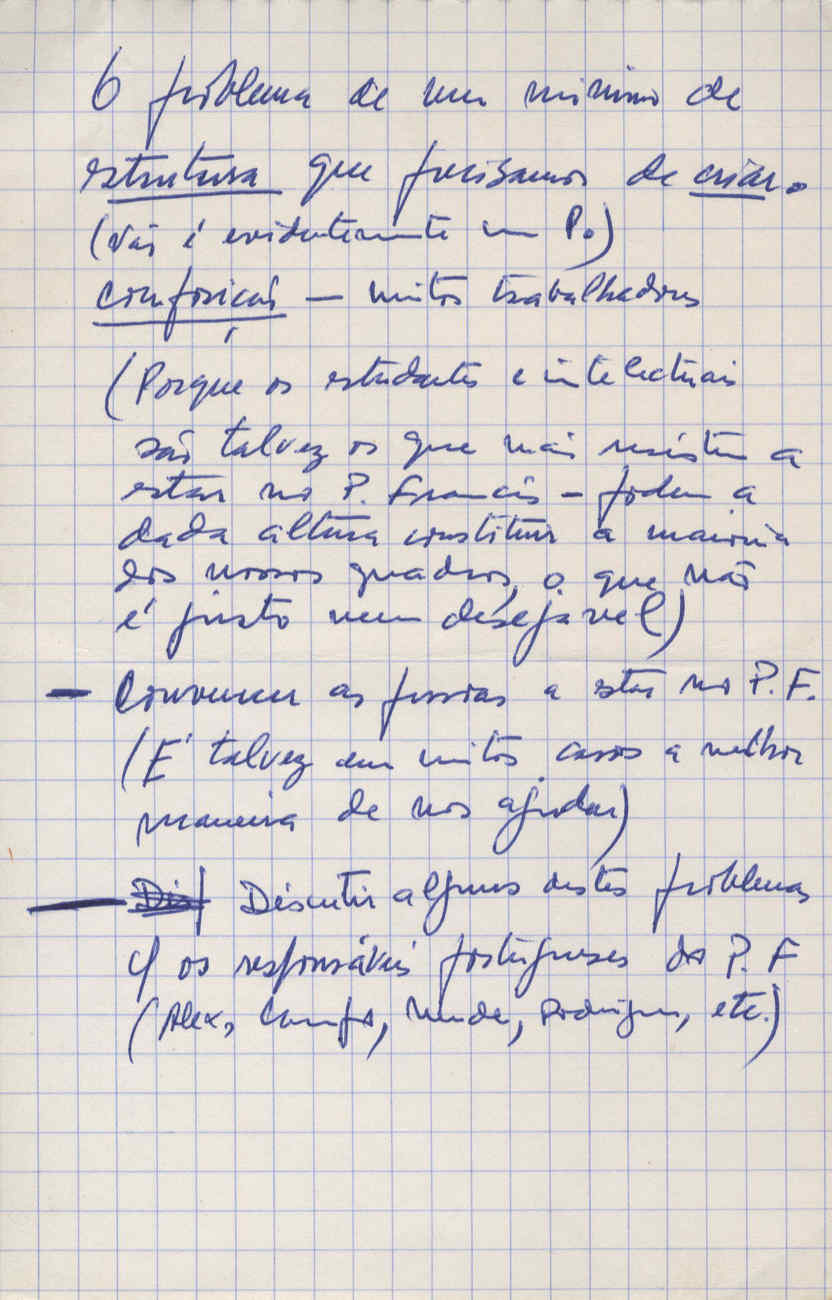 O problema de um mínimo de
estrutura que precisamos de criar.
(Não é evidentemente um P.)
Composição — muitos trabalhadores
(Porquê os estudantes e intelectuais
são talvez os que mais resistem a
estar no P. Francês - podem a
dada altura constituir a maioria
dos nossos quadros, o que não
é justo nem desejável)
— Convencer as pessoas a estar no P.F.
(É talvez em muitos casos a melhor
maneira de nos ajudar)
— Dis Discutir alguns destes problemas
c/ os responsáveis portugueses do P.F
(Alex, Campos, Rodrigues, etc.)